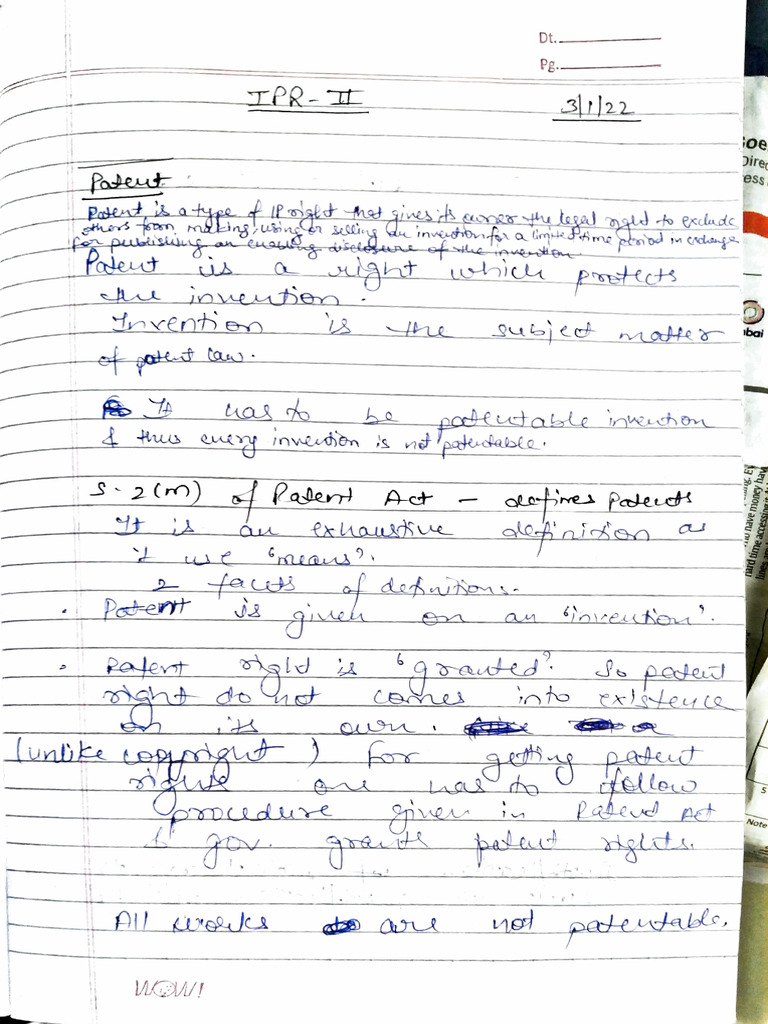 Dt.
Pg.
IPR - II
3/1/22
Patent
Patent is a type of IP right that gives its owner the legal right to exclude
others from making, using or selling an invention for a limited time period in exchange
for publishing an enabling disclosure of the invention.
Patent is a right which protects
the invention.
Invention is the subject matter
of patent law.
It has to be patentable invention
& thus every invention is not patentable.
S. 2(m) of Patent Act - defines patents
It is an exhaustive definition as
it use 'means'.
2 facets of definitions.
• Patent is given on an 'invention'.
• Patent right is 'granted'. So patent
right do not comes into existence
on its own.
(unlike copyright) for getting patent
rights one has to follow
procedure given in Patent Act
& gov. grants patent rights.
All works are not patentable.
WOW!
Goe
Direc
ess
bai
ng. Ev
o have money hav
hard time accessing it
lines
5
Note